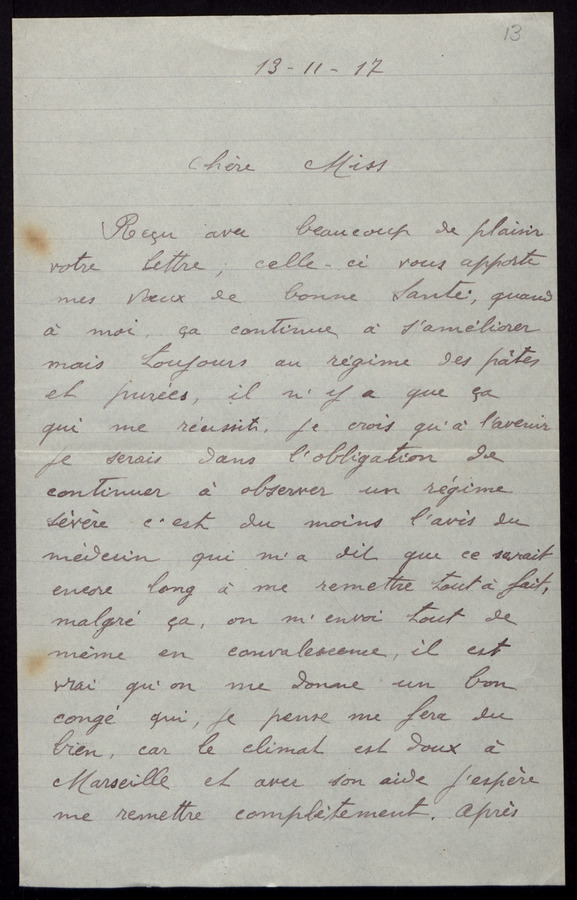 13
13 - 11 - 17
Chère Miss
Reçu avec beaucoup de plaisir
votre lettre, celle-ci vous apporte
mes vœux de bonne Santé, quand
à moi, ça continue à s'améliorer
mais toujours au régime des pâtes
et purées, il n'y a que ça
qui me réussit. je crois qu'à l'avenir
je serais dans l'obligation de
continuer à observer un régime
sévère c'est du moins l'avis du
médecin qui m'a dit que ce serait
encore long à me remettre tout à fait,
malgré ça, on m'envoi tout de
même en convalescence, il est
vrai qu'on me donne un bon
congé qui, je pense me fera du
bien, car le climat est doux à
Marseille et avec son aide j'espère
me remettre complètement. Après